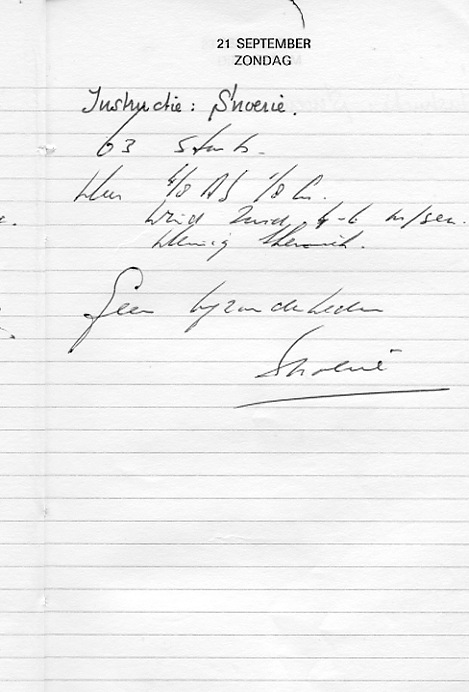 21 SEPTEMBER
ZONDAG
Instructie: Snoerie.
63 Starts.
4/8 AS 1/8 Cu.
Wind Zuid 4-6 m/sec.
Weinig thermiek.
Geen byzonderheden